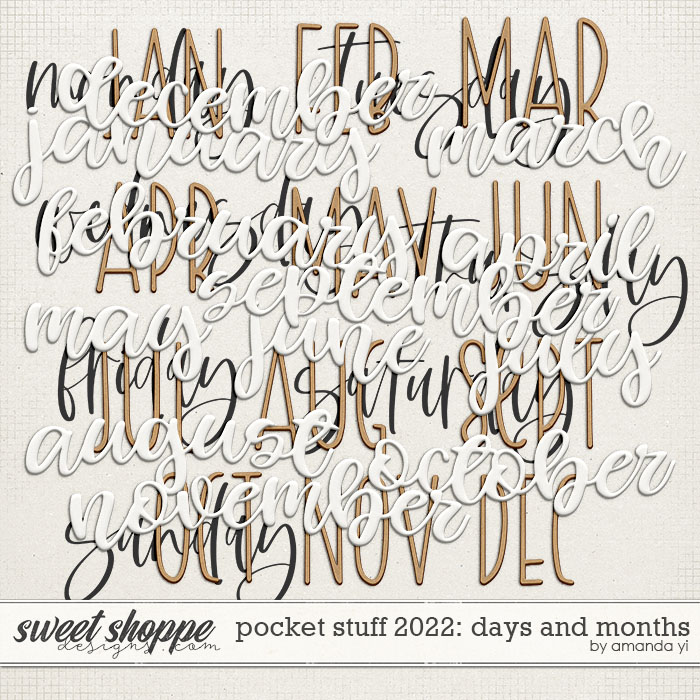 JAN FEB MAR
monday tuesday
december
january march
APR MAY JUN
wednesday thursday
february april
september
may june july
JUL AUG SEPT
friday saturday
august october
november
OCT NOV DEC
sunday
sweet shoppe designs.com
pocket stuff 2022: days and months
by amanda yi